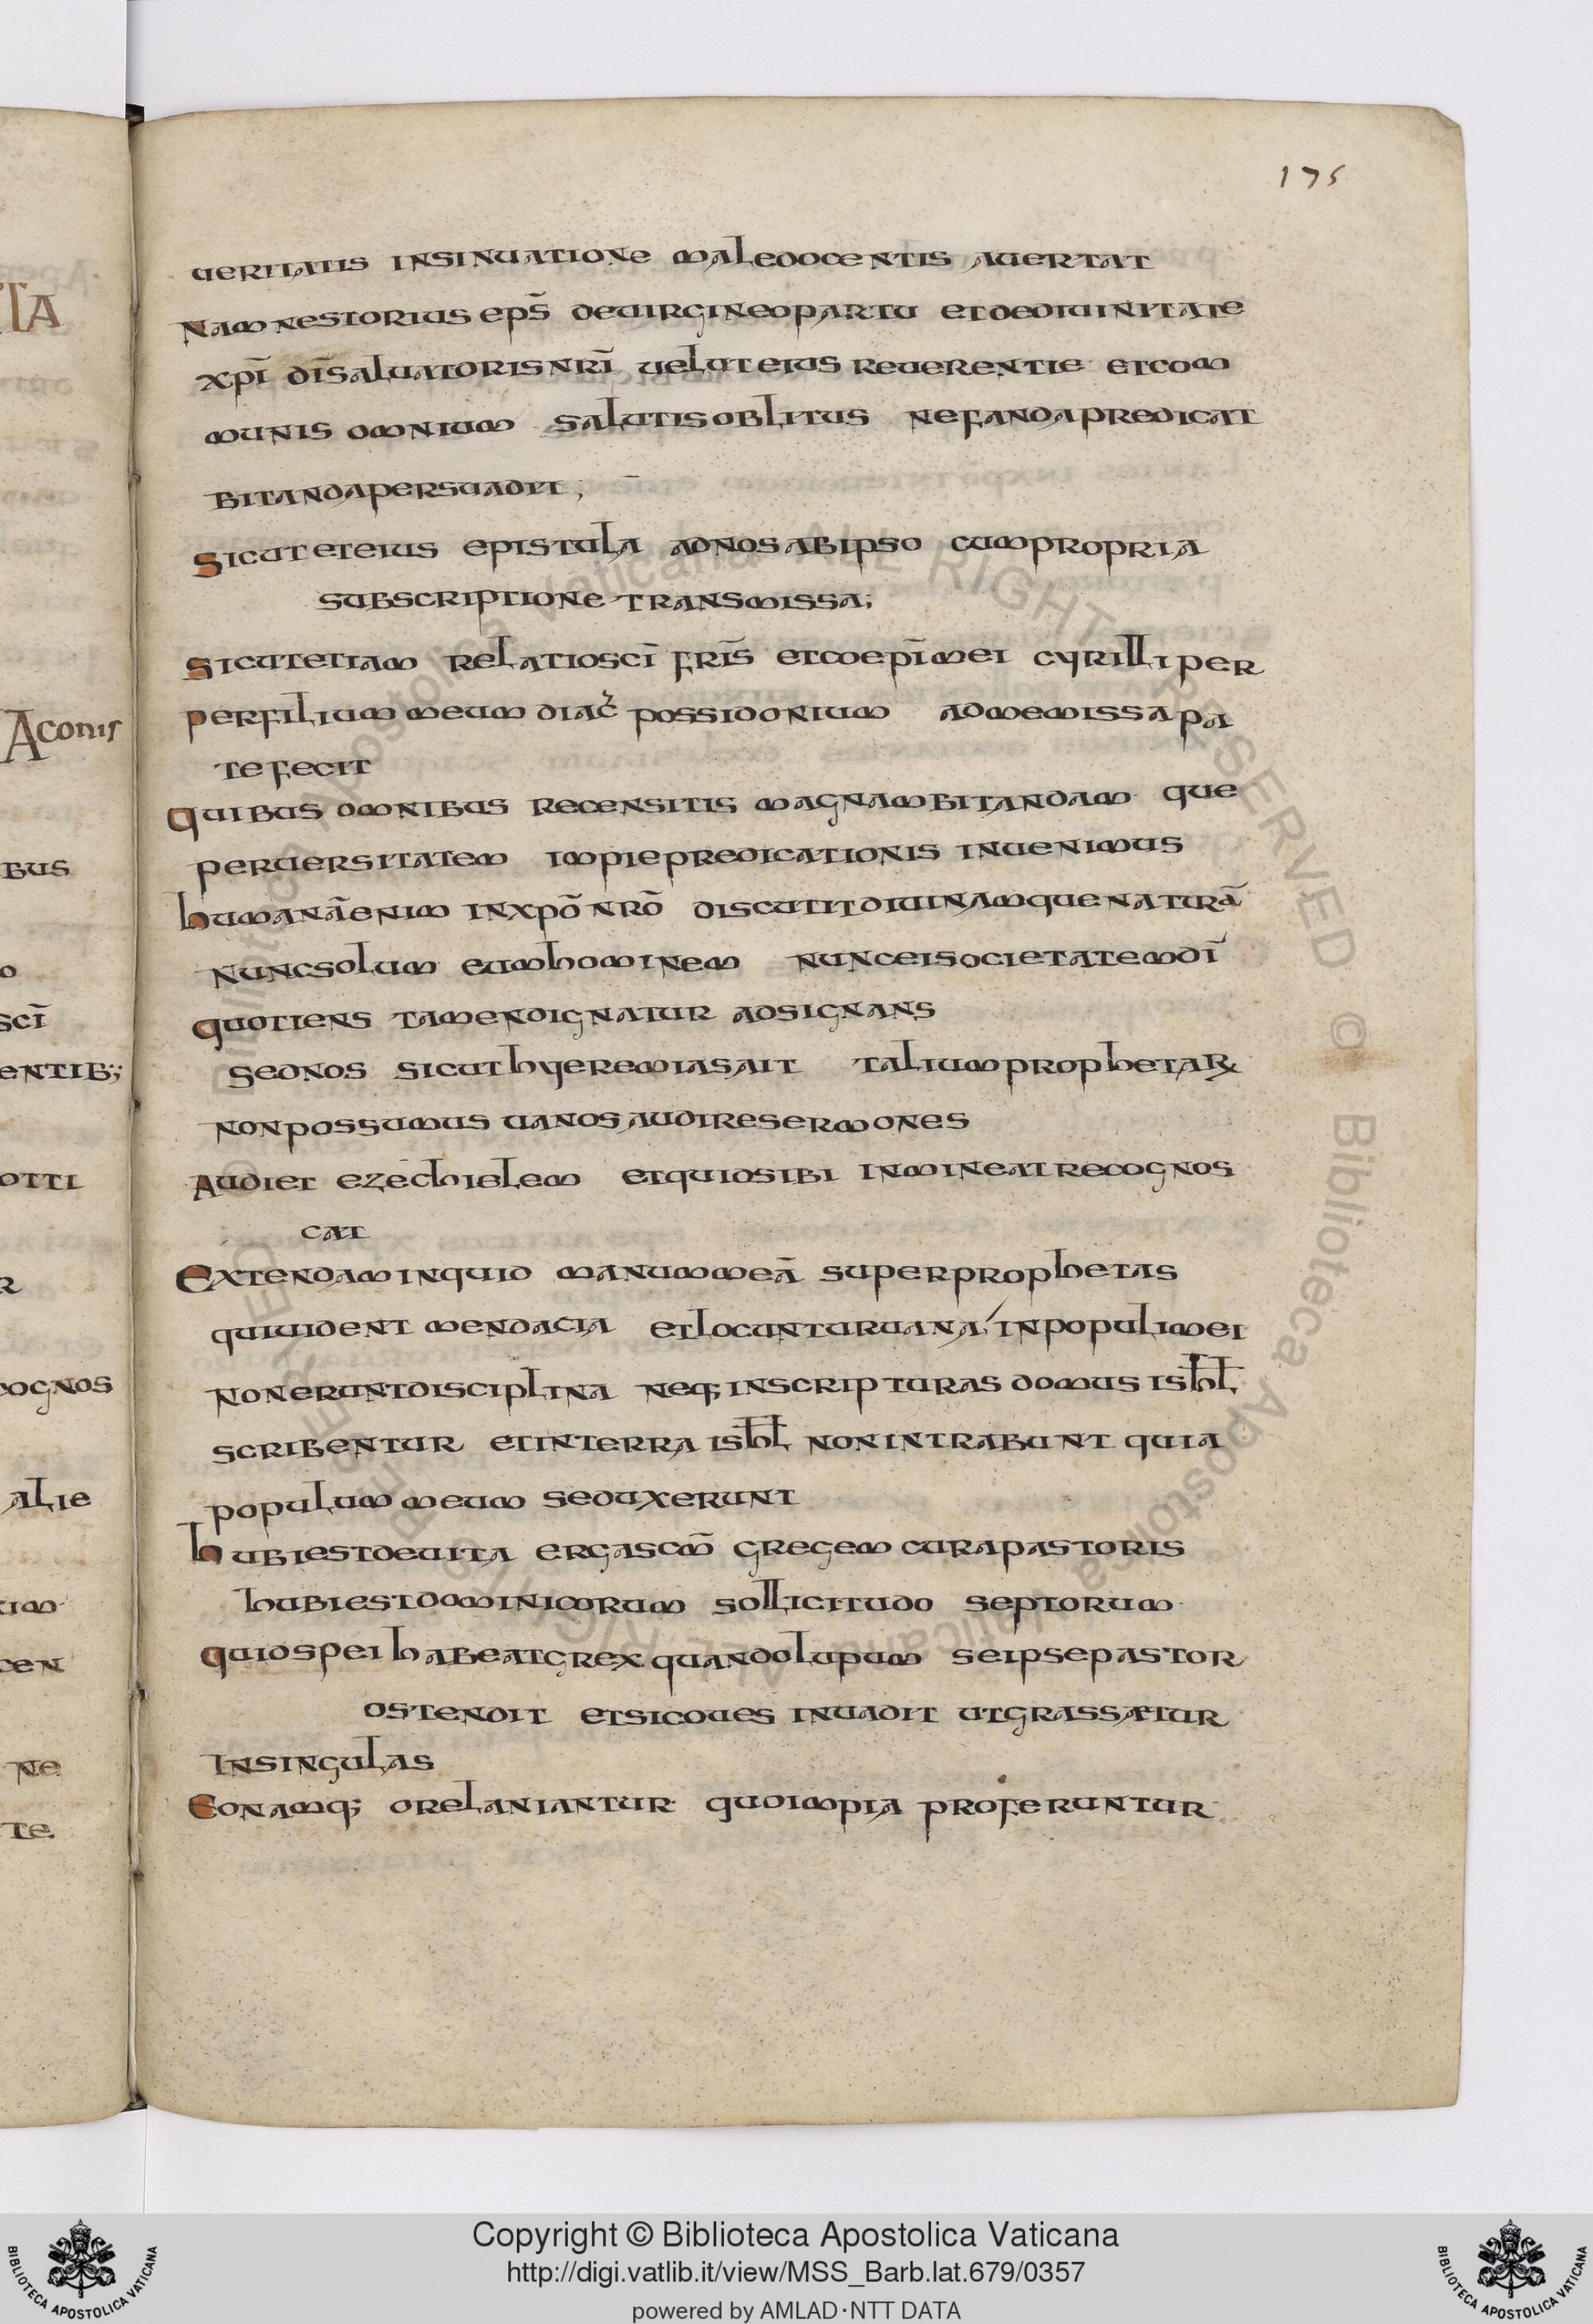 175
ueritatis insinuatione maledocentis auertat
Nam nestorius eps̄ deuirgineopartu etdediuinitate
xp̄i dn̄i saluatoris nr̄i uelut eius reuerentie etcom
munis omnium salutis oblitus nefanda predicat
bitanda persuadit;
Sicut et eius epistula adnos abipso cum propria
subscriptione transmissa;
Sicut etiam relatio sc̄i fr̄is etcoep̄i mei cyrilli per
per filium meum diac̄ possidonium admemissa pa
tefecit
Quibus omnibus recensitis magnam bitandam que
peruersitatem impie predicationis inuenimus
humanā enim in xp̄o nr̄o discutit diuinamque naturā
nunc solum eum hominem nunc ei societatem dī
quotiens tamen dignatur adsignans
sed nos sicut hyeremias ait talium prophetaꝝ
non possumus uanos audire sermones
Audiet ezechielem et quid sibi inmineat recognos
cat
Extendam inquid manum meā super prophetas
qui uident mendacia et locuntur uana, in populi mei
non erunt disciplina neq; in scripturas domus ish̄l
scribentur et in terra ish̄l non intrabunt quia
populum meum seduxerunt
hubi est de uita erga scm̄ gregem cura pastoris
hubi est dominicorum sollicitudo septorum
quid spei habeat grex quando lupum se ipse pastor
ostendit et sic oues inuadit ut grassetur
in singulas
Eo namq; ore laniantur quo impia proferuntur
TA
Aconis
bus
o
sc̄i
entib;
otti
r
cognos
alie
im
cen
ne
te
Copyright © Biblioteca Apostolica Vaticana
http://digi.vatlib.it/view/MSS_Barb.lat.679/0357
powered by AMLAD·NTT DATA
BIBLIOTECA APOSTOLICA VATICANA
BIBLIOTECA APOSTOLICA VATICANA